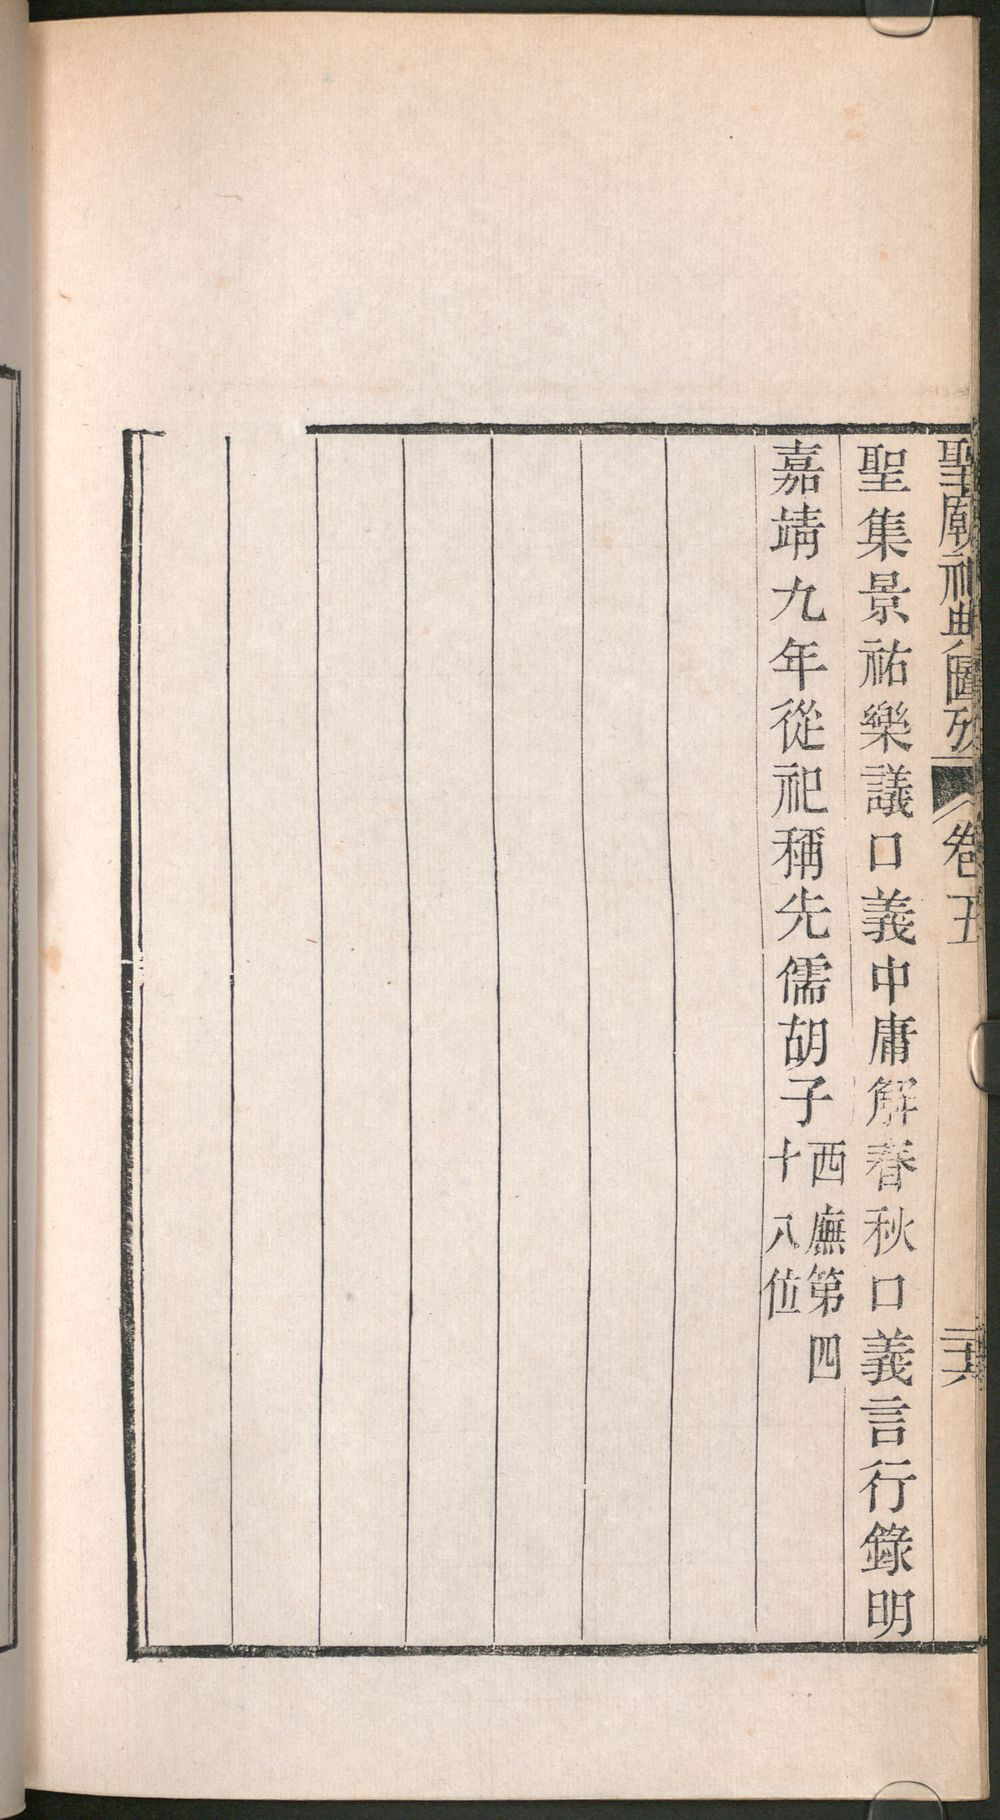 聖廟祀典圖攷 卷五 二十六
聖集景祐樂議口義中庸解春秋口義言行錄明
嘉靖九年從祀稱先儒胡子西廡第四
十八位